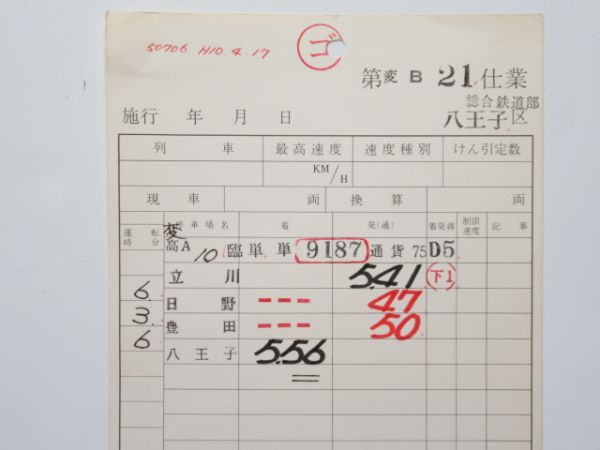 50706 H10.4.17
ゴ
第変B 21仕業
総合鉄道部
施行 年 月 日 八王子区
列車 最高速度 速度種別 けん引定数
KM/H
現車 両 換算 両
運転時分 停車場名 着 発(通) 着発線 制限速度 記事
変
高A 10 臨単単 9187 通貨75 D5
立川 5.41 下1
6.
日野 --- 47
3.
豊田 --- 50
6
八王子 5.56